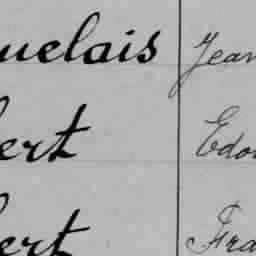 uelais Jean
bert Edou
bert Fra